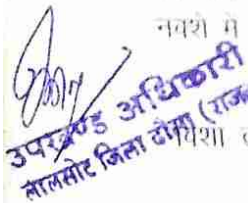 नक्शे में
उपखण्ड अधिकारी
लालसोट जिला दौसा (राज